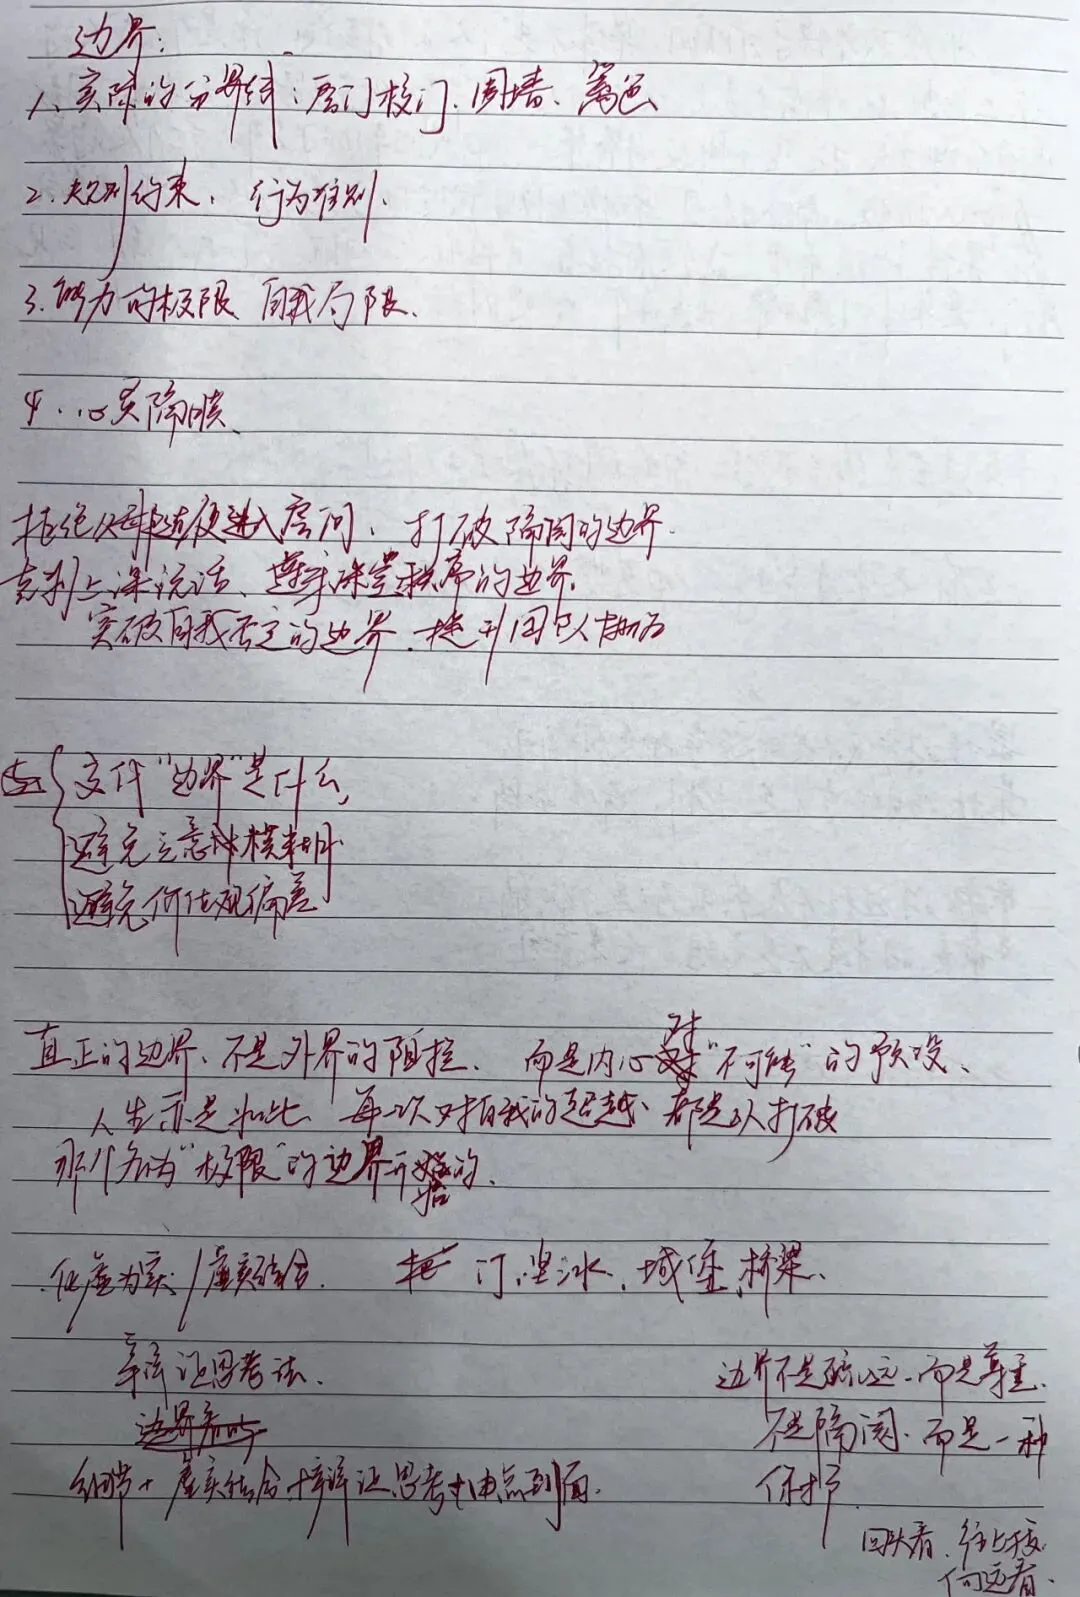 边界:
1、实际的分界线:房门校门、围墙、
2.规则约束、行为准则、
3.能力的极限 自我局限、
4、心灵隔膜、
拒绝父母进入房间、打破隔阂的边界.
克制上课说话、遵守课堂秩序的边界.
突破自我否定的边界、提升
边界"是什么,
避免立意模糊
避免价值观偏差
真正的边界、不是外界的阻拦、而是内心对"不可能"的预设、
人生亦是如此、每一次对自我的超越、都是从打破
那个名为"极限"的边界开始的、
化虚为实/虚实结合. 把 门、坚冰、城堡、桥梁、
辩证思考法.
边界不是疏远、而是尊重.
边界看
不是隔阂、而是一种
细节+虚实结合+辩证思考+由点到面.
保护
回头看、往上
向远看.